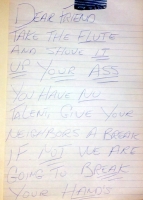 DEAR FRIEND
TAKE THE FLUTE
AND SHOVE IT
UP YOUR ASS
YOU HAVE NO
TALENT GIVE YOUR
NEIGHBORS A BREAK
IF NOT WE ARE
GOING TO BREAK
YOUR HANDS